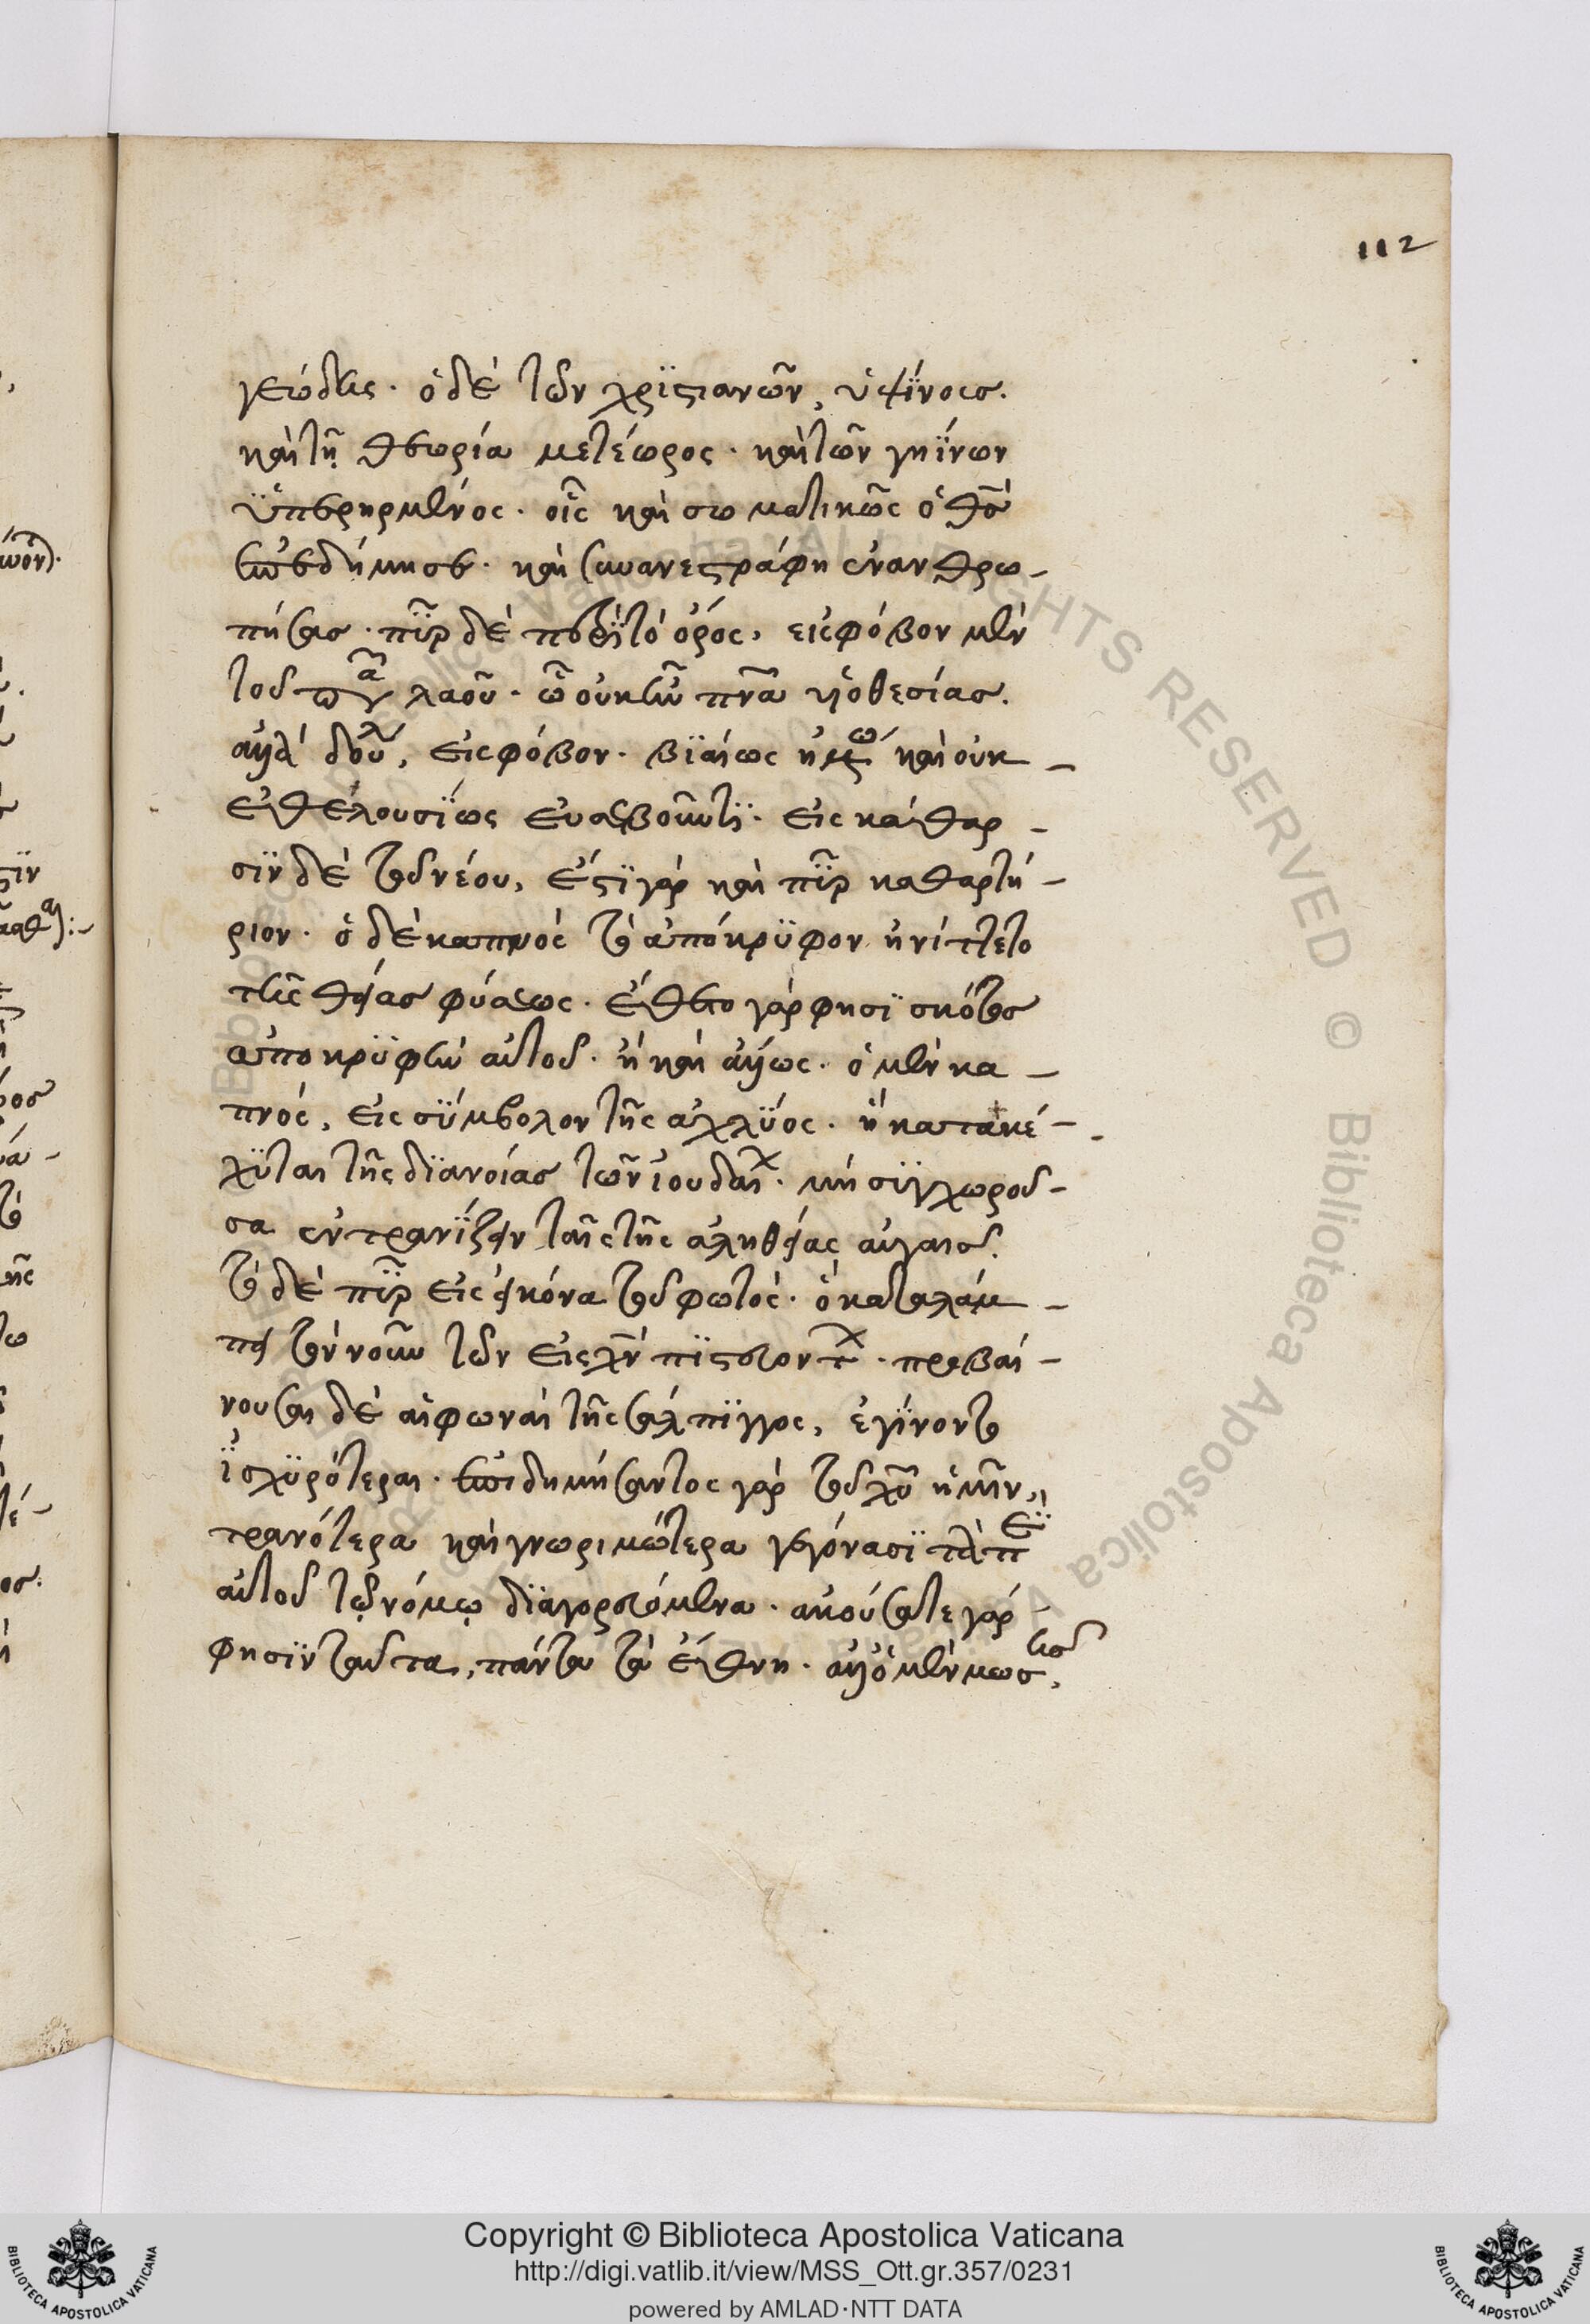 112
γεώδης. ὁ δὲ τῶν χρϊστιανῶν, ὑψίνοος.
καὶ τῆ θεωρία μετέωρος. καὶ τῶν γηΐνων
ὑπερηρμένος. οἷς καὶ σωματικῶς ὁ θς̄
ἐπεδήμησε. καὶ συνανεστράφη ἐνανθρω-
πήσας. πῦρ δὲ περὶ τὸ ὄρος, εἰς φόβον μὲν
τοῦ παλαιοῦ λαοῦ. ὧ οὐκ ἦν πν̄α υἱοθεσίας.
ἀλλὰ δουλ, εἰς φόβον. βϊαίως καὶ οὐκ-
ἐθελουσΐως εὐσεβοῦντϊ. εἰς κάθαρ-
σϊν δὲ τοῦ νέου, ἔστϊ γὰρ καὶ πῦρ καθαρτή-
ριον. ὁ δὲ καπνὸς τὸ ἀπόκρϋφον ἠνίττετο
τῆς θείας φύσεως. ἔθετο γάρ φησϊ σκότος
ἀποκρϋφὴν αὐτοῦ. ἢ καὶ ἄλλως. ὁ μὲν κα-
πνὸς, εἰς σΰμβολον τῆς ἀχλΰος. ἣ κατακέ-
χϋται τῆς δϊανοίας τῶν ἰουδαί. μὴ σϋγχωροῦ-
σα ἐντρανΐζειν ταῖς τῆς ἀληθείας αὐγαῖς.
τὸ δὲ πῦρ εἰς εἰκόνα τοῦ φωτὸς. ὁ καταλάμ-
πει τὸν νοῦν τῶν εἰς χν̄ πϊστευόντ. προβαί-
νουσαι δὲ αἱ φωναὶ τῆς σάλπϊγγος, ἐγΐνοντο
ἰσχϋρότεραι. ἐπιδημήσαντος γὰρ τοῦ χῦ ἡμῖν,
τρανότερα καὶ γνωριμώτερα γεγόνασϊ τὰ πε
αὐτοῦ τῷ νόμῳ δϊαγορευόμενα. ἀκούσατε γάρ-
φησϊν ταῦτα, πάντα τὰ ἔθνη. ἀλλ' ὁ μὲν μωσῆς,
Copyright © Biblioteca Apostolica Vaticana
http://digi.vatlib.it/view/MSS_Ott.gr.357/0231
powered by AMLAD·NTT DATA